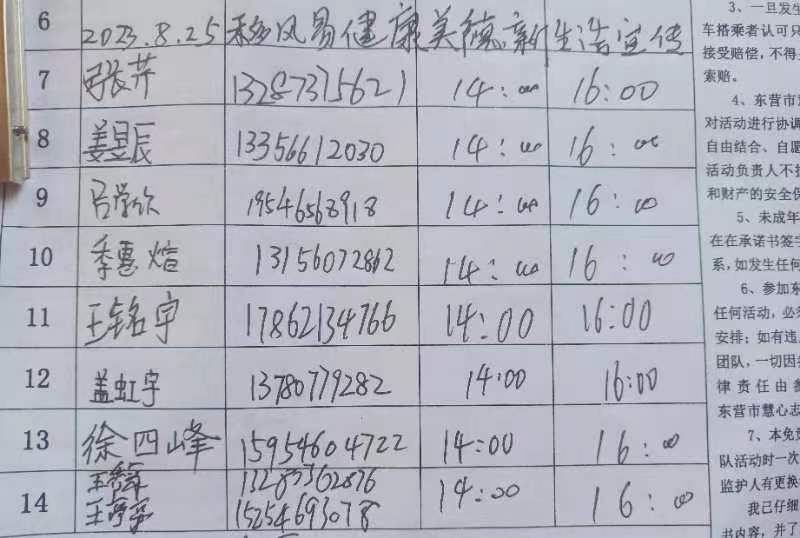 6 2023.8.25 移风易健康美德新生活宣传
7 张芹 13287375621 14:00 16:00
8 姜昱辰 13356612030 14:00 16:00
9 吕学欣 19546568918 14:00 16:00
10 季惠煊 13156072862 14:00 16:00
11 王铭宇 17862134766 14:00 16:00
12 盖虹宇 13780779282 14:00 16:00
13 徐四峰 15954604722 14:00 16:00
14 王 13287362876 14:00 16:00
王 15254693078
3、一旦发生
车搭乘者认可只
接受赔偿，不得
索赔。
4、东营市
对活动进行协调
自由结合、自愿
活动负责人不
和财产的安全保
5、未成年
在在承诺书签字
系，如发生任何
6、参加东
任何活动，必须
安排；如有违
团队，一切因
律责任由参
东营市慧心志
7、本免
队活动时一次
监护人有更换
我已仔细
书内容，并了